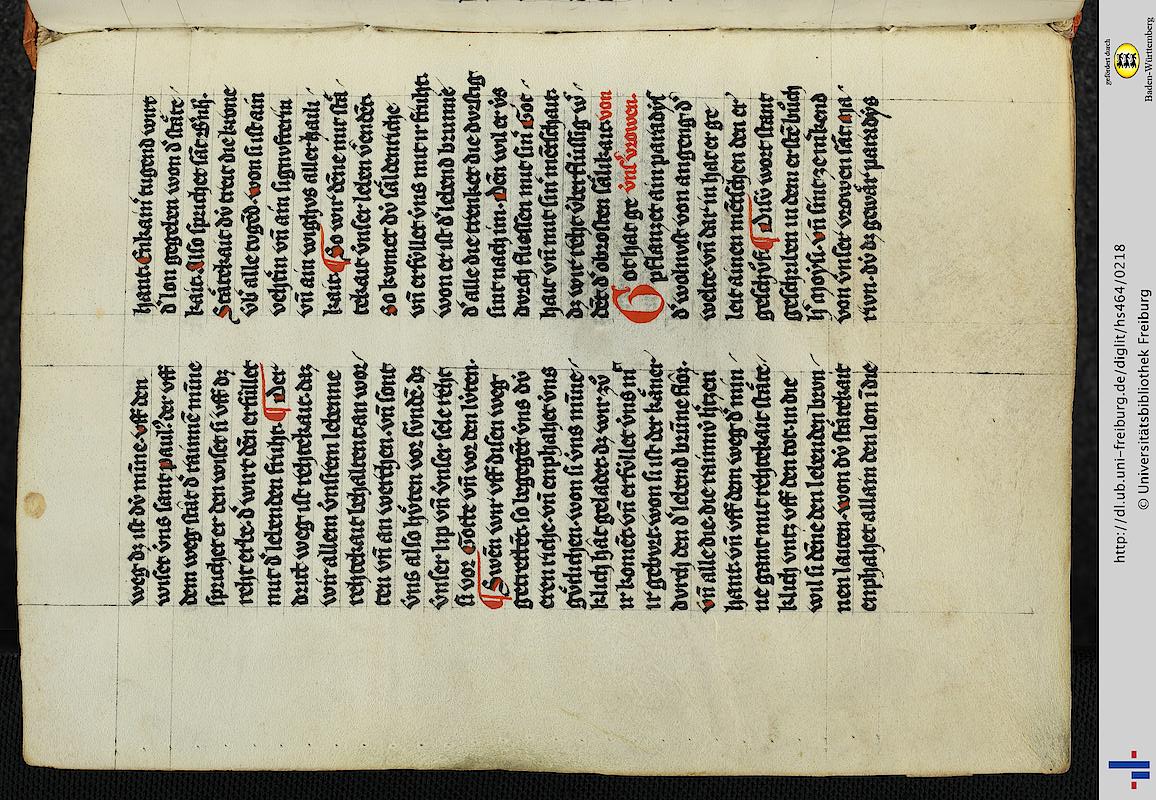 weg dz ist dv́ mīne. vff den
wiset vns sant paul᾽. der vff
dem weg stāt d᾽ raine mīne
spricht er den wiset si vff dz
reht erbe. d᾽ wirt dēn erfúllet
mit d᾽ lebenden fruht. Der
drit weg ist rehtekait. daz
wir allem vnserem lebenne
rehtekait behaltent. an wor
ten vn̄ an werchen. vn̄ sont
v́ns also hv́ten vor súndē. dz
v́nser lip vn̄ v́nser sele reht
si vor Gotte vn̄ vor den lv́ten.
Swēn wir vff disen weg
getretēt. so begegēt v́ns dú
eren riche. vn̄ enphahet v́ns
gv́tlichen. won si v́ns mine
klich hāt geladen dz wir zv̊
ir komēt vn̄ erfúllet v́ns mit
ir geburt. won si ist der kāner
durch den d᾽ lebend brūne flos.
vn̄ alle die die rainnv́ h᾽tzen
hant. vn̄ vff den weg d᾽ min
ne gant mit rehtekait stāte
klich vntz vff den tot. in die
wil si dēne den lebenden brvn
nen laiten. won dv́ stātekait
enphahet allain den lon. die
hant. Enkain tugend wirt
d᾽ lon gegeben won d᾽ stāte
kait. Also sprichet sāt Bn̄h.
Stātekait dv́ treit die krone
v́b᾽ alle tvgēd. won si ist ain
vehtin vn̄ ain signvfterin
vn̄ ain wighvs aller haili
kait. So wir dēne mit stā
tekait v́nser leben vendēt.
so komet dv́ sāldenriche
vn̄ erfúllet v́ns mit ir fruht.
won er ist d᾽ lebend brunne
d᾽ alle die trenket die dvrstig
sint nach im. Dēn wil er v́s
durch fliessen mit sin᾽ Got
hait vn̄ mit sin᾽ mēschait.
dz wir reht v́berflússig w᾽
dēt. d᾽ obrosten sālikait. von
Got hat ge vns᾽ vrowen.
pflanzet ain paradys
d᾽ wolnust von angeng d᾽
welte. vn̄ dar in hat er ge
leit ainen mēschen den er
geschv̊f. Disv́ wort stant
geschriben in dem erstē bůch
h᾽n moysi. vn̄ sint ze mīkend
van v́nser vrowen sāt Ma
riun. dv́ dz gewār paradys
http://dl.ub.uni-freiburg.de/diglit/hs464/0218
© Universitätsbibliothek Freiburg
gefördert durch
Baden-Württemberg